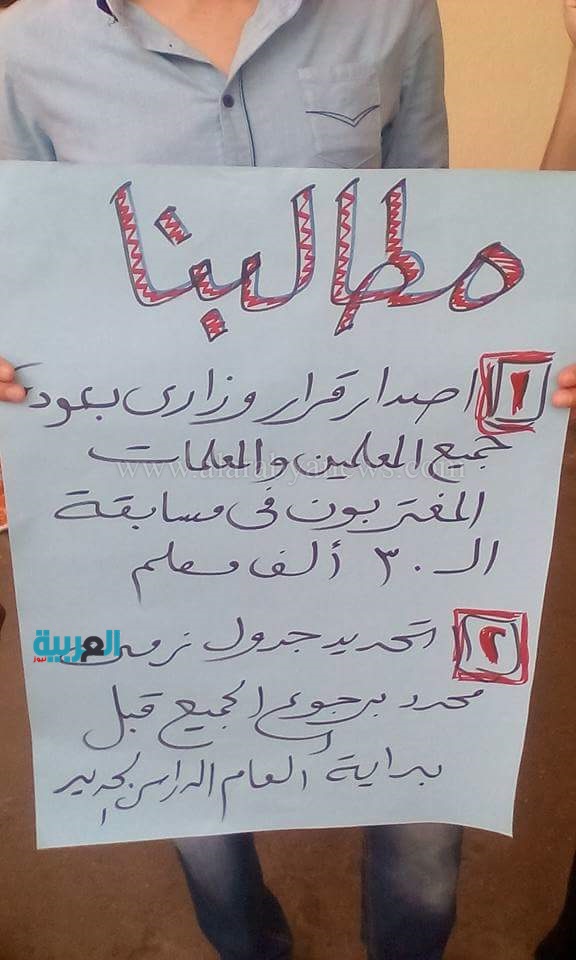 مطالبنا
١ اصدار قرار وزارى بعودة
جميع المعلمين والمعلمات
www.alarabyanews.com
المغتربون فى مسابقة
الـ ٣٠ ألف معلم
٢ تحديد جدول زمنى
العربية
نيوز
محدد برجوع الجميع قبل
بداية العام الدراسى الجديد